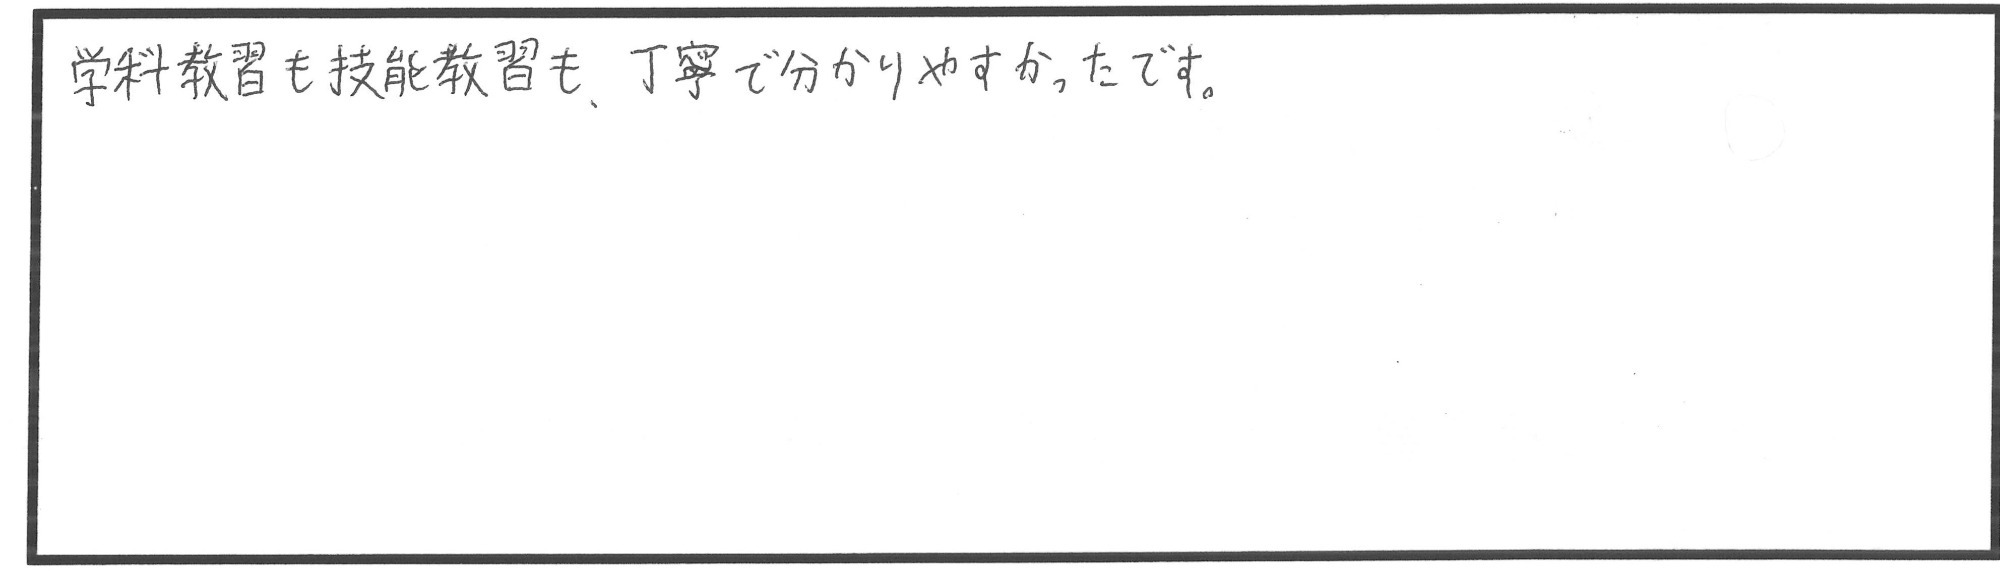 学科教習も技能教習も、丁寧で分かりやすかったです。